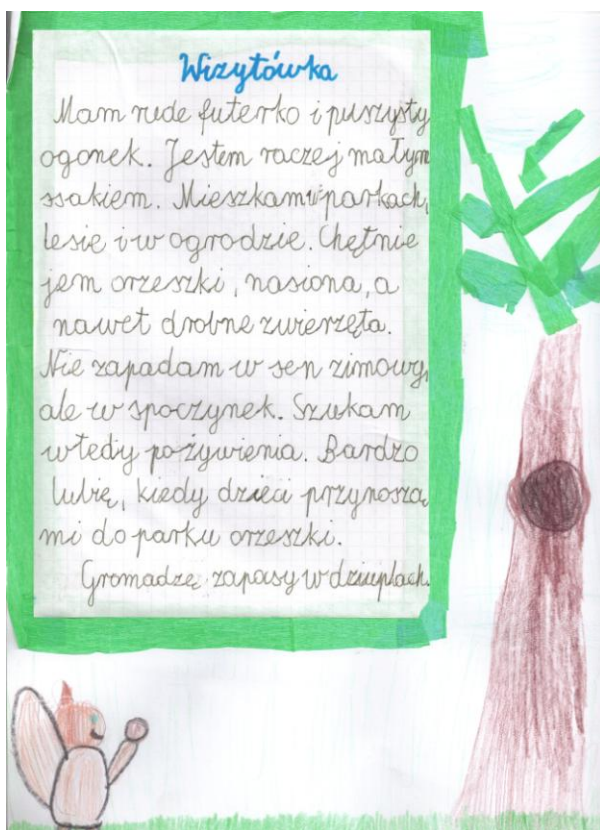 Wizytówka
Mam rude futerko i puszysty
ogonek. Jestem raczej małym
ssakiem. Mieszkam w parkach,
lesie i w ogrodzie. Chętnie
jem orzeszki, nasiona, a
nawet drobne zwierzęta.
Nie zapadam w sen zimowy,
ale w spoczynek. Szukam
wtedy pożywienia. Bardzo
lubię, kiedy dzieci przynoszą
mi do parku orzeszki.
Gromadzę zapasy w dziuplach.